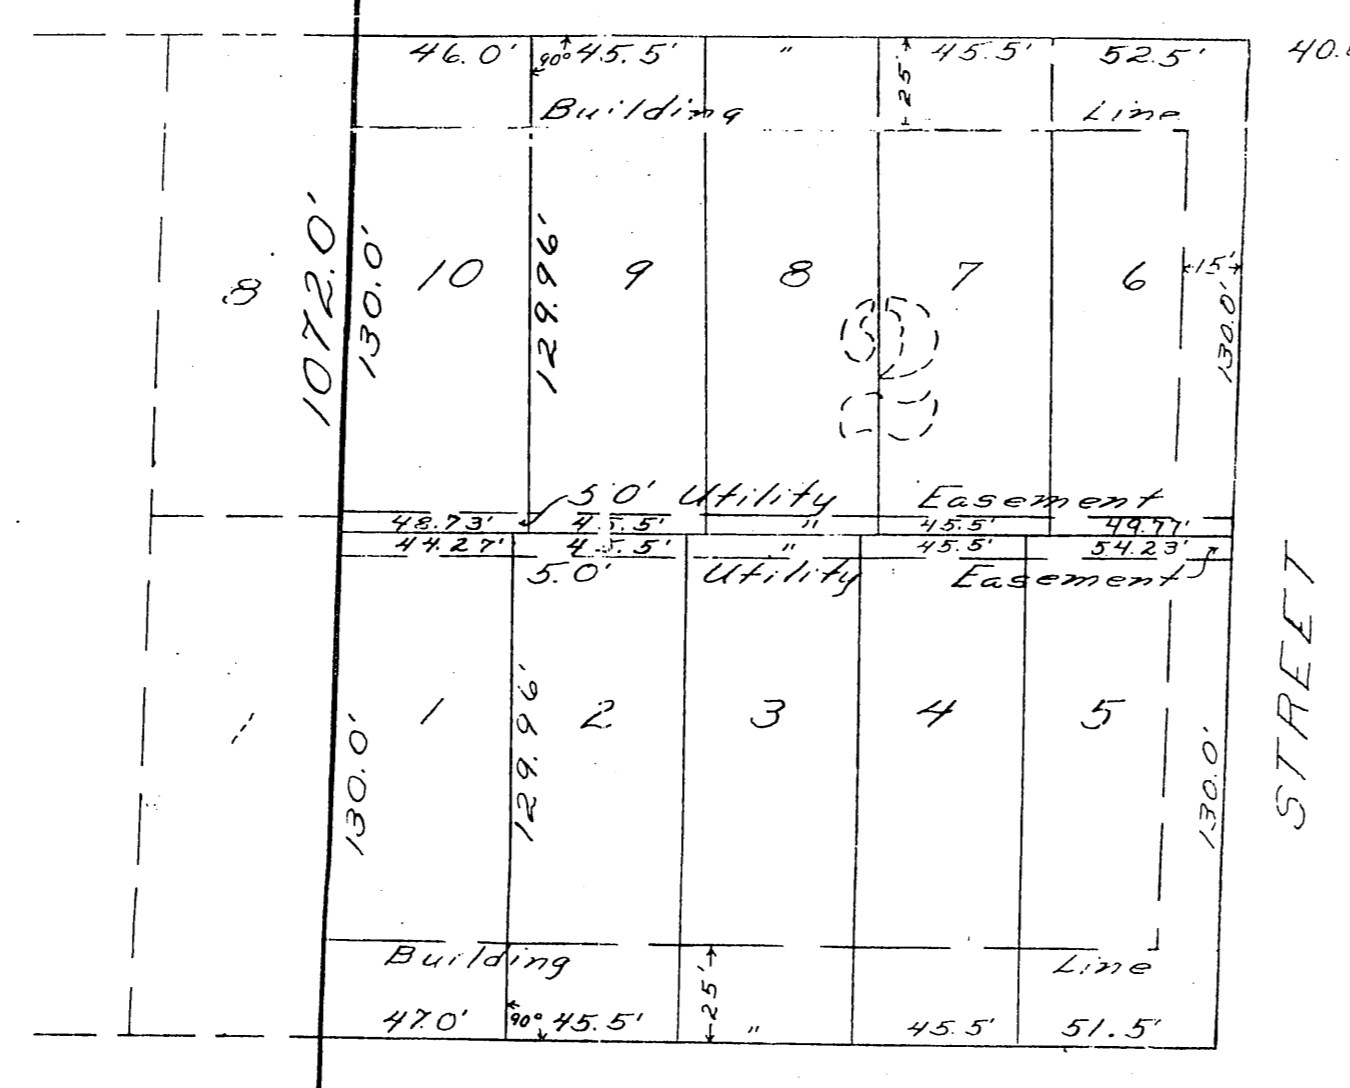 46.0' 90° 45.5' " 45.5' 52.5'
25'
Building Line
1072.0'
130.0'
129.96'
15'
130.0'
8 10 9 8 7 6
5.0' Utility Easement
48.73' 45.5' " 45.5' 49.77'
44.27' 45.5' " 45.5' 54.23'
5.0' Utility Easement
STREET
1 1 2 3 4 5
130.0'
129.96'
130.0'
Building Line
25'
47.0' 90° 45.5' " 45.5' 51.5'